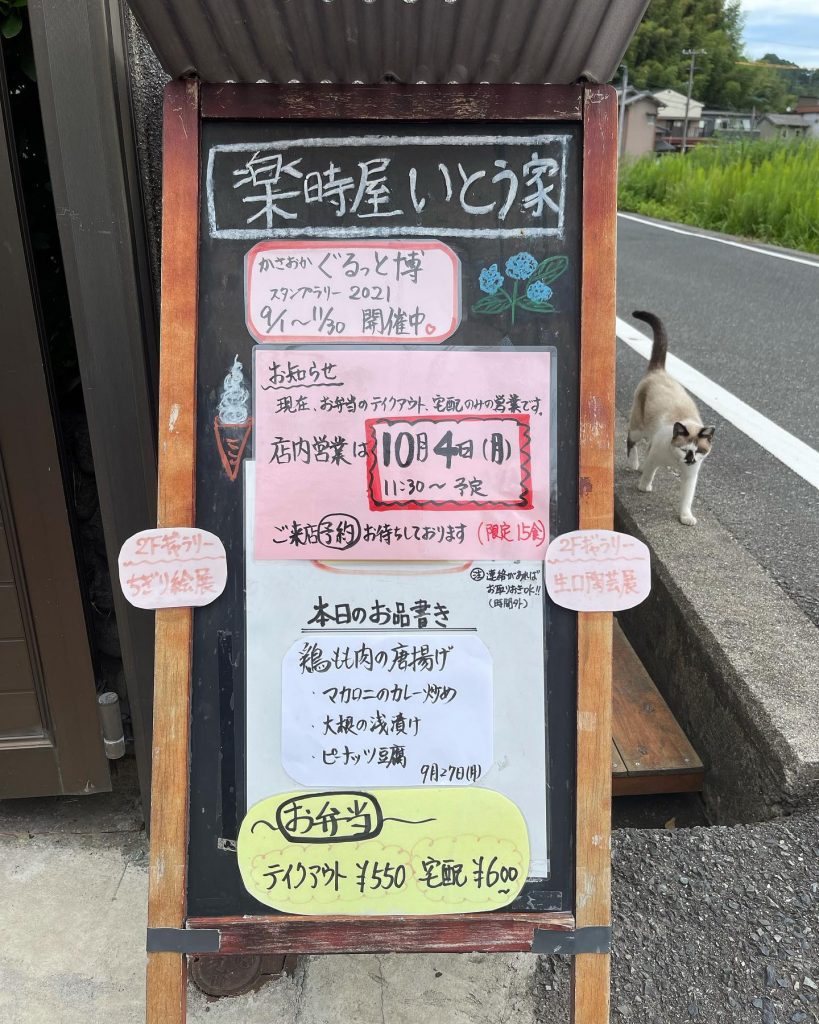 楽時屋 いとう家
かさおか ぐるっと博
スタンプラリー 2021
9/1〜11/30 開催中。
お知らせ
現在、お弁当のテイクアウト、宅配のみの営業です。
店内営業は 10月4日(月)
11:30〜 予定
ご来店予約お待ちしております (限定15食)
㊟連絡があれば
お取りおきOK!!
(時間外)
2Fギャラリー
ちぎり絵展
2Fギャラリー
生口陶芸展
本日のお品書き
鶏もも肉の唐揚げ
・マカロニのカレー炒め
・大根の浅漬け
・ピーナッツ豆腐
9月27日(月)
お弁当
テイクアウト ¥550 宅配 ¥600